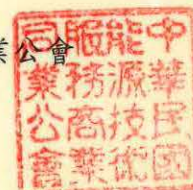 業公會
中華民國
能源技術
服務商業
同業公會